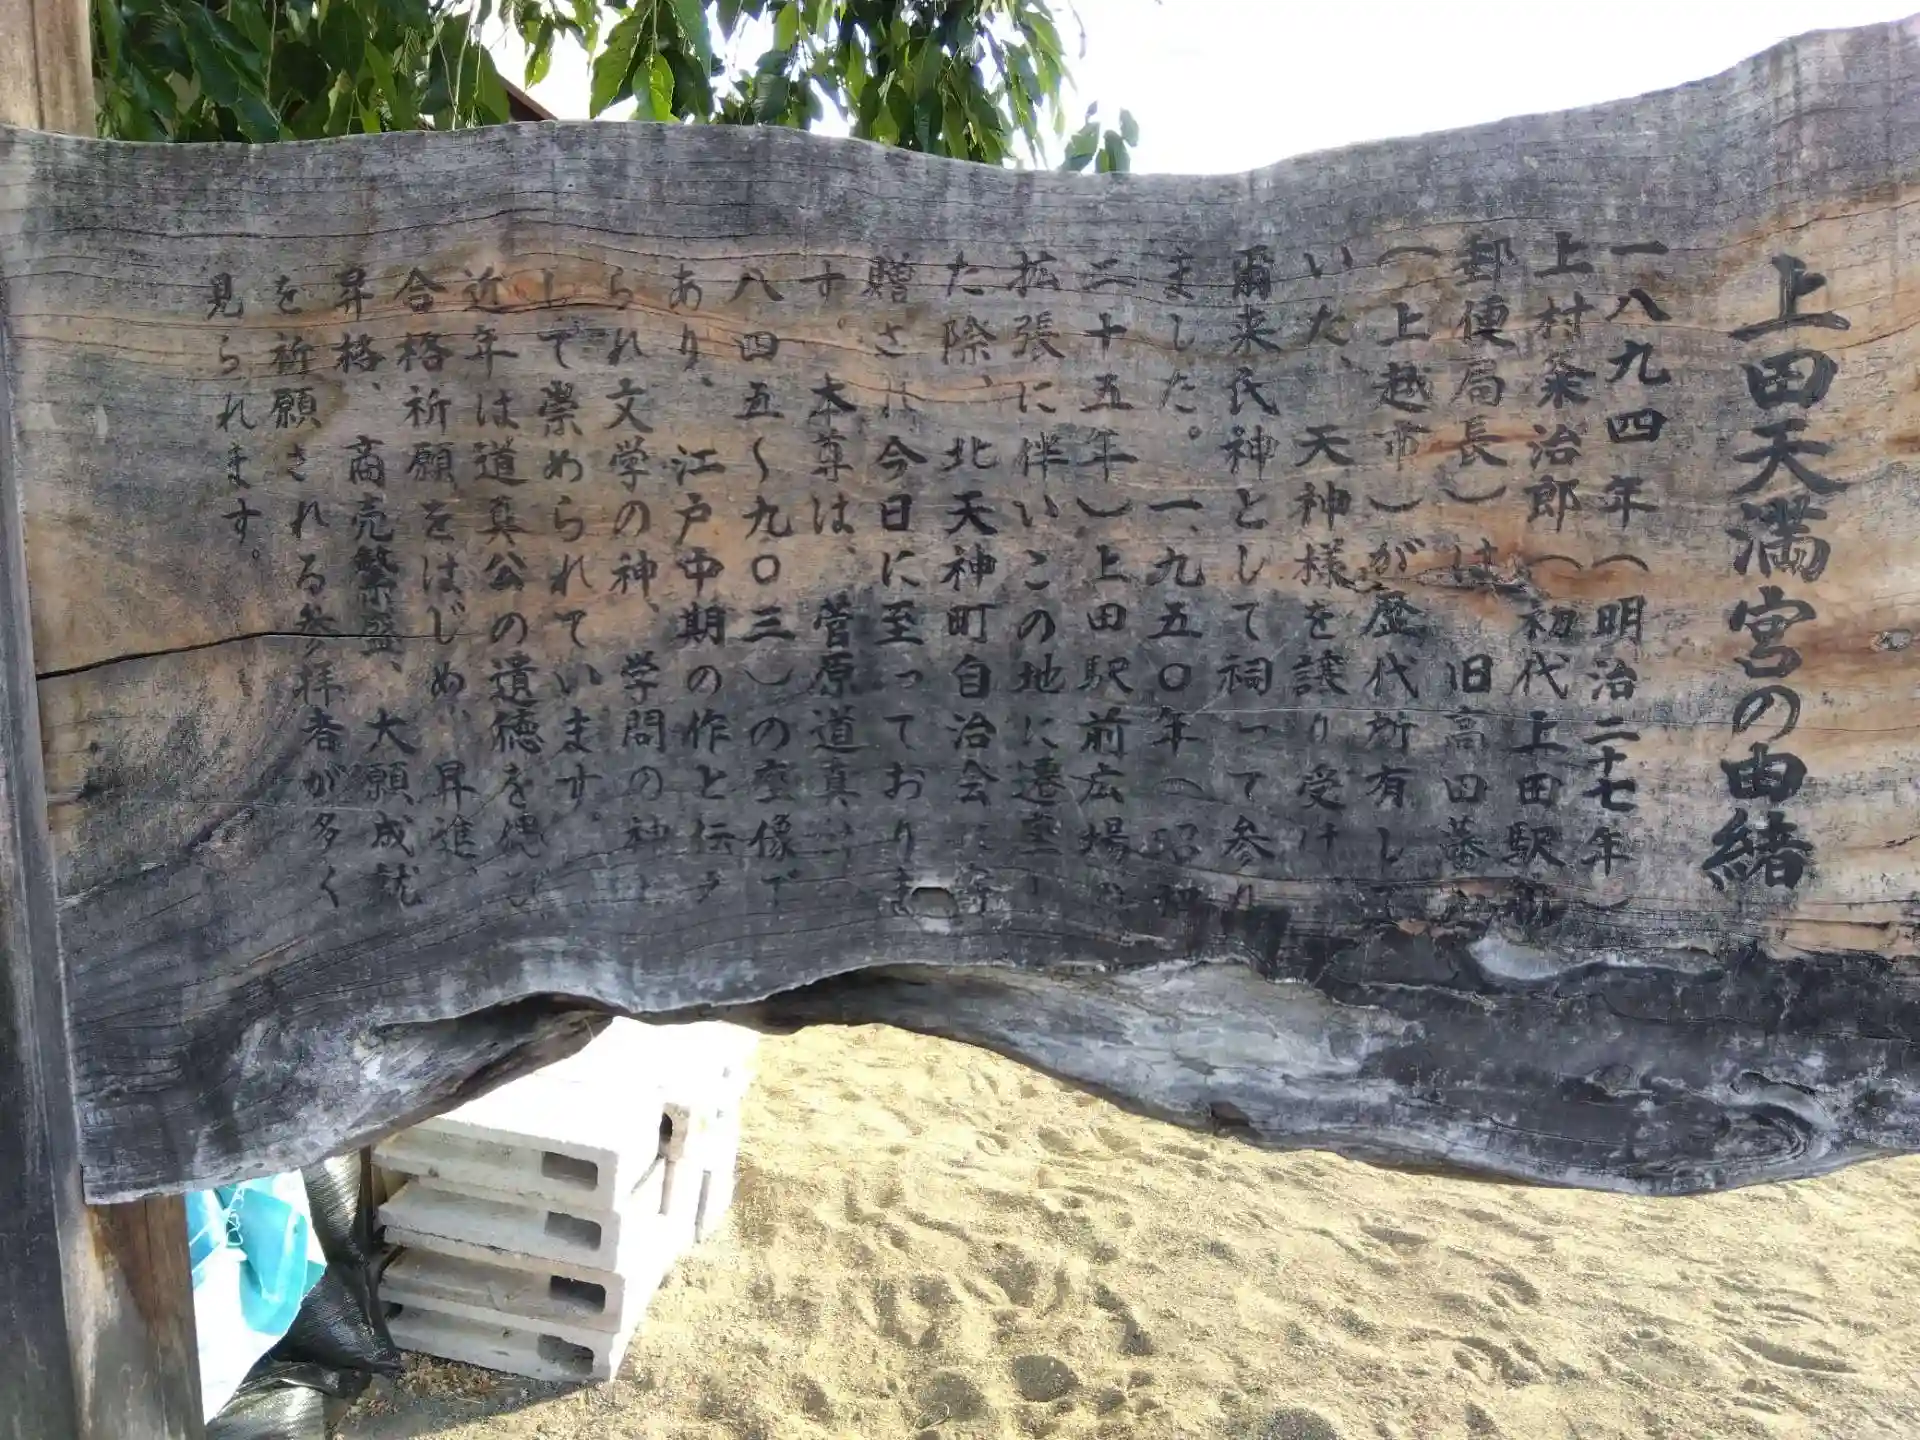 上田天満宮の由緒
一八九四年(明治二十七年)
上村粂治郎(初代上田駅前
郵便局長)は、旧高田藩
(上越市)が歴代所有し
いた、天神様を譲り受け
爾来氏神として祠って参り
ました。一、九五〇年(昭和
二十五年)上田駅前広場
拡張に伴いこの地に遷座
た際、北天神町自治会に寄
贈され今日に至っておりま
す。本尊は、菅原道真
八四五~九〇三)の座像で
あり、江戸中期の作と伝え
られ文学の神、学問の神と
して崇められています。
近年は道真公の遺徳を偲び
合格祈願をはじめ、昇進、
昇格、商売繁盛、大願成就
を祈願される参拝者が多く
見られます。